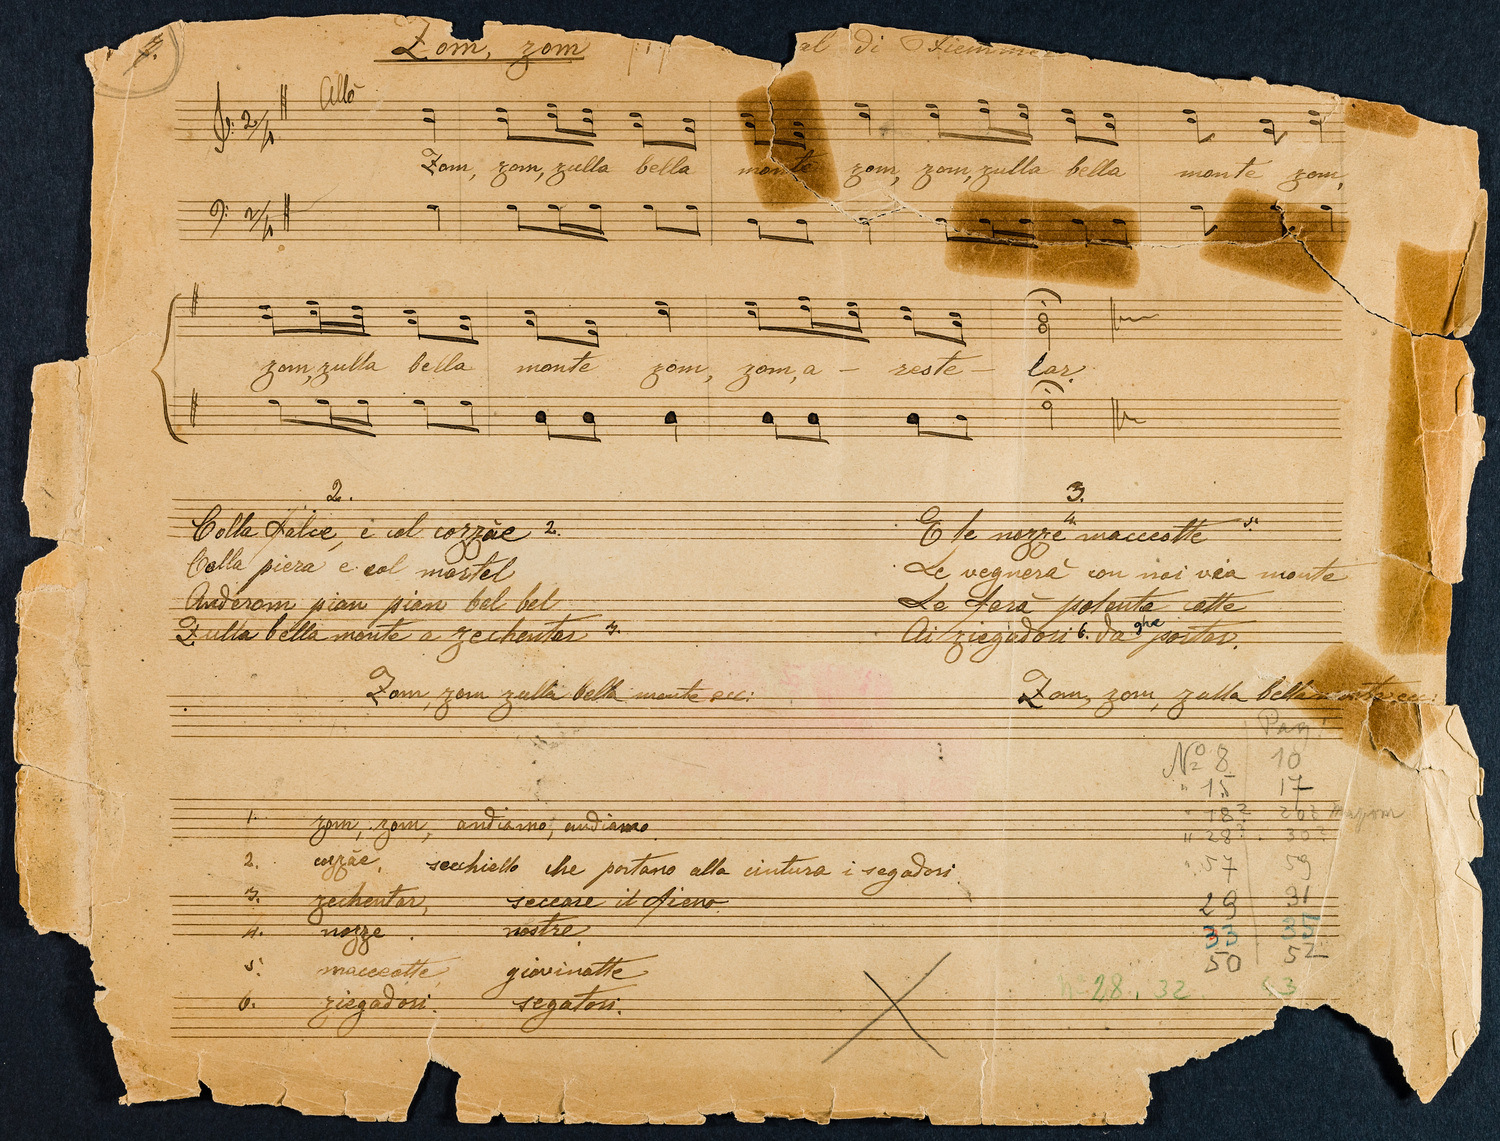 7.
Zom, zom (1) al di Fiemme
Allo
2/4
Zom, zom, zulla bella monte zom, zom, zulla bella monte zom,
2/4
zom, zulla bella monte zom, zom, a - reste - lar.
2.
Colla falce, e col cozzàe 2.
Colla piera e col martel
Anderom pian pian bel bel
Zulla bella monte a zechentar 3.
Zom, zom zulla bella monte ecc:
3.
E le nozze 4. maccotte 5.
Le vegnerà con noi via monte
Le farà polenta cotte
Ai ziegadori 6. da ghe portar.
Zom, zom, zulla bella monte ecc:
Pag:
No 8 10
" 15 17
" 18? 20?
" 28? 30?
" 57 59
29 31
33 35
50 52
N 28. 32 53
1. zom, zom, andiamo, andiamo
2. cozzàe, secchiello che portano alla cintura i segadori
3. zechentar, seccare il fieno
4. nozze nostre
5. macceotte, giovinotte
6. ziegadori. segatori.